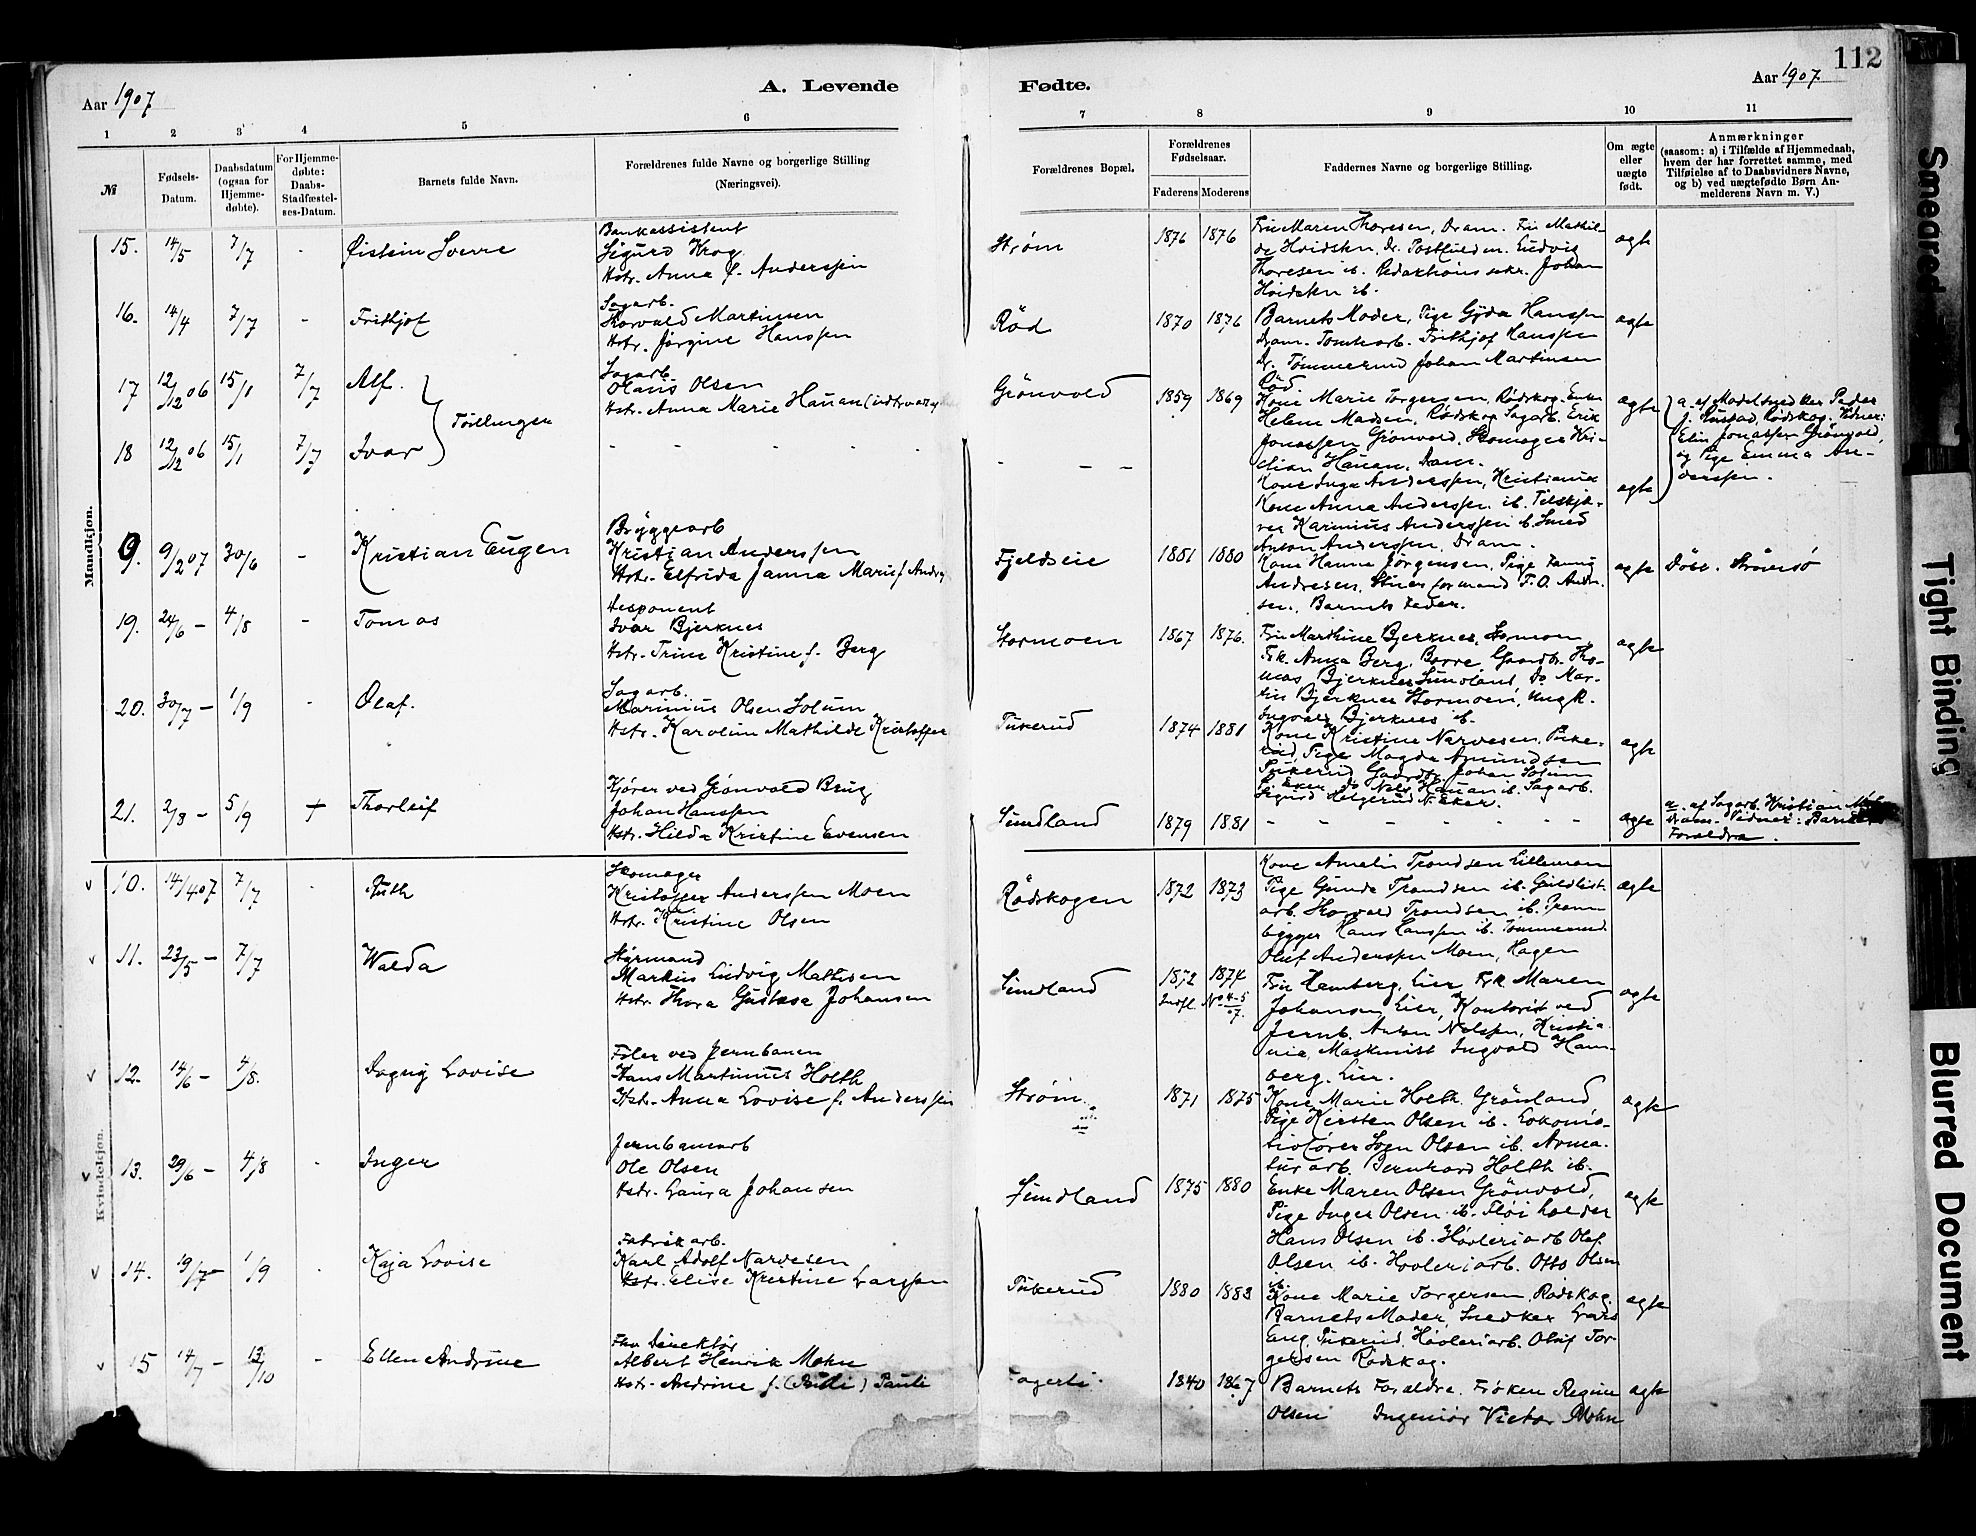 112
Aar 1907
A. Levende
Fødte.
Aar 1907
1 2 3 4 5 6 7 8 9 10 11
№
Fødsels-Datum.
Daabsdatum (ogsaa for Hjemme-døbte).
For Hjemme-døbte: Daabs-Stadfæstel-ses-Datum.
Barnets fulde Navn.
Forældrenes fulde Navne og borgerlige Stilling (Næringsvei).
Forældrenes Bopæl.
Forældrenes Fødselsaar.
Faderens Moderens
Faddernes Navne og borgerlige Stilling.
Om ægte eller uægte født.
Anmærkninger
(saasom: a) i Tilfælde af Hjemmedaab,
hvem der har forrettet samme, med
Tilføielse af to Daabsvidners Navne,
og b) ved uægtefødte Børn An-
melderens Navn m. V.)
Mandkjøn.
15. 14/5 7/7 - Øistein Loevre
Bankassistent
Sigurd Krog
Hstr. Anna f. Anderssen
Strøm 1876 1876
Fru Maren Thoresen, Dram. Fru Mathil-
de Hoidskn, Dr. Ludvig
Thoresen ib. Redaktionssekr. Johan
Hoidskn ib.
ægte
16. 14/4 7/7 - Frithjof
Sagarb.
Thorvald Martinsen
Hstr. Jørgine Hanssen
Rød 1870 1876
Barnets Moder, Pige Gyda Hanssen
Dram. Tomtearb. Frithjof Hanssen
Dr. Tømmermd Johan Martinsen
Rød.
ægte
17 12/12 06 15/1 7/7 Alf.
Tvillinger
Sagarb.
Olaus Olsen
Hstr. Anna Marie Hauan
Grønvold 1859 1869
Kone Marie Torgersen, Rødskog. Enke
Helene Madsen, Rødskog Sagarb. Erik
Jonassen Grønvold, Skomager Kri-
stian Hauan, Dram.
ægte
a. af Modelsnedker Peder
J. Rustad, Rødskog. Vidner:
Elin Jonassen Grønvold,
og Pige Emma An-
derssen.
18 12/12 06 15/1 7/7 Ivar
- - -
Kone Inga Anderssen, Kristiania
Kone Anna Anderssen ib. Tilskjæ-
rer Karinius Anderssen ib. Smed
Anton Anderssen, Dram.
ægte
9. 9/2 07 30/6 - Kristian Eugen
Bryggearb
Kristian Anderssen
Hstr. Elfrida Janna Marie f. Andr
Fjeldseie 1881 1880
Kone Hanna Jørgensen, Pige Fanny
Andresen, Stuerformand T. O. Andr.
sen, Barnets Fader.
ægte Døbt. Strømsø
19. 24/6 - 4/8 - Tomas
Disponent
Ivar Bjerknes
Hstr. Trine Kristine f. Berg
Stormoen 1867 1876.
Fru Marthine Bjerknes, Stormoen
Frk. Anna Berg, Borre, Gaardbr. Tho-
mas Bjerknes Sundland, Do Mar-
tin Bjerknes Stormoen, Ungk.
Ingvald Bjerknes ib.
ægte
20. 30/7 - 1/9 - Olaf.
Sagarb.
Marinius Olsen Solum
Hstr. Karoline Mathilde Kristoffer
Pukerud 1874 1881
Kone Kristine Narvesen, Puke-
rud, Pige Magda Amundsen
Pukerud, Gaardbr. Johan Solum
Eker, do Nels Hauan ib. Sagarb.
Sigurd Helgerud N. Eker.
ægte
21. 2/8 - 5/9 + Thorleif
Kjører ved Grønvold Brug
Johan Hanssen
Hstr. Hilda Kristine Evensen
Sundland 1879 1881 - - - - - - ægte
a. af Sagarb. Kristian
Dram. Vidner: Barnets
Forældre.
Kvindekjøn.
10. 14/4 07 7/7 - Ruth
Skomager
Kristoffer Anderssen Moen
Hstr. Kristine Olsen
Rødskogen 1872 1873
Kone Amalia Trondsen Lilleman
Pige Gunda Trondsen ib. Guldlist-
arb. Thorvald Trondsen ib. Pram-
bygger Hans Hanssen ib. Tømmermd.
Oluf Anderssen Moen, Hagen
ægte
11. 23/5 - 7/7 Walda
Styrmand
Markus Ludvig Mathisen
Hstr. Thora Gustava Johansen
Sundland 1872 1874
Indfl. No 4-5 07.
Fru Hamberg, Lier, Frk Maren
Johansen Lier, Kontorist ved
Jernb. Anton Nelssen, Kristia-
nia, Maskinist Ingvald Ham-
berg. Lier.
ægte
12. 14/6 - 4/8. Dagny Lovise
Filer ved Jernbanen
Hans Martinius Holth
Hstr. Anna Lovise f. Anderssen
Strøm. 1871 1875
Kone Marie Holth, Grønland
Pige Kirsten Olsen ib. Lokomo-
tivfører Sven Olsen ib. Arma-
turarb. Bernhard Holth ib.
ægte
13. 29/6 - 4/8 - Inger
Jernbanearb
Ole Olsen
Hstr. Laura Johansen
Sundland 1875 1880
Enke Maren Olsen Grønvold,
Pige Inger Olsen ib. Fløiholder
Hans Olsen ib. Høvleriarb Olaf
Olsen ib. Høvleriarb. Otto Olsen
ib.
ægte
14. 19/7 - 1/9 - Kaja Lovise
Fabrikarb.
Karl Adolf Narvesen
Hstr. Elise Kristine Larssen
Pukerud 1880 1883
Kone Marie Torgersen, Rødskog,
Barnets Moder, Snedker Lars
Eng, Pukerud, Høvleriarb. Oluf Tor-
gersen Rødskog.
ægte
15 14/7 - 13/10 - Ellen Andrine
Fhv Direktør
Albert Henrik Mohn
Hstr. Andrine f. Pauli
Fagerli. 1840 1867
Barnets Forældre. Frøken Regine
Olsen Ingeniør Victor Mohn
ægte
Smeared
Tight Binding
Blurred Document